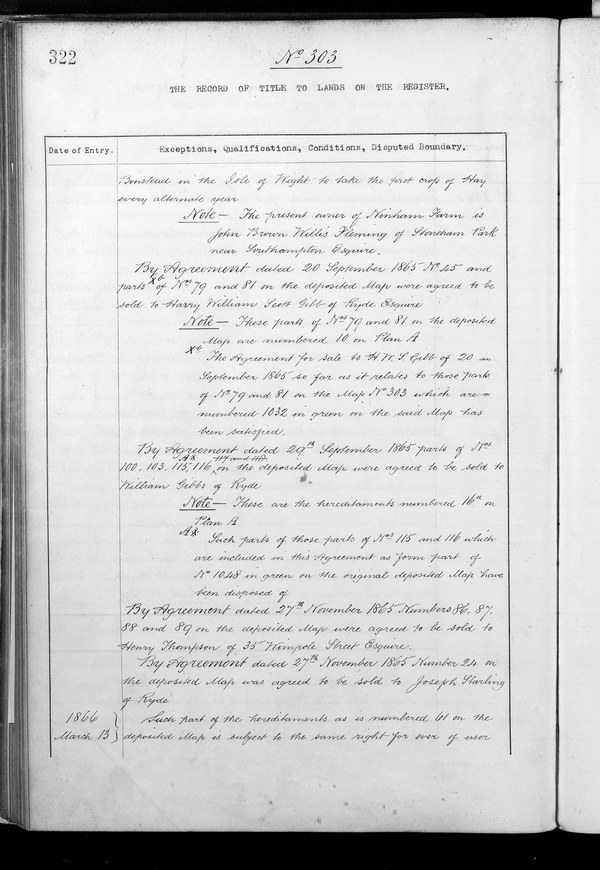 322
No 303
THE RECORD OF TITLE TO LANDS ON THE REGISTER.
Date of Entry.
Exceptions, Qualifications, Conditions, Disputed Boundary.
Binstead in the Isle of Wight to take the first crop of Hay
every alternate year
Note — The present owner of Ninham Farm is
John Brown Willis Fleming of Stoneham Park
near Southampton Esquire.
By Agreement dated 20 September 1865 No 45 and
parts Xb of Nos 79 and 81 on the deposited Map were agreed to be
sold to Harry William Scott Gibb of Ryde Esquire
Note — These parts of Nos 79 and 81 on the deposited
Map are numbered 10 on Plan A
Xb
The Agreement for sale to H. W. S. Gibb of 20
September 1865 so far as it relates to those parts
of No 79 and 81 on the Map No 303 which are
numbered 1032 in green on the said Map has
been satisfied.
By Agreement dated 29th September 1865 parts of Nos
A& 117 and 118
100, 103, 115, 116 on the deposited Map were agreed to be sold to
William Gibbs of Ryde
Note — These are the hereditaments numbered 16a on
Plan A
A&
Such parts of those parts of Nos 115 and 116 which
are included in this Agreement as form part of
No 1048 in green on the original deposited Map have
been disposed of
By Agreement dated 27th November 1865 Numbers 86, 87,
88 and 89 on the deposited Map were agreed to be sold to
Henry Thompson of 35 Wimpole Street Esquire.
By Agreement dated 27th November 1865 Number 24 on
the deposited Map was agreed to be sold to Joseph Starling
of Ryde
1866
March 13
Such part of the hereditaments as is numbered 61 on the
deposited Map is subject to the same right for ever of user